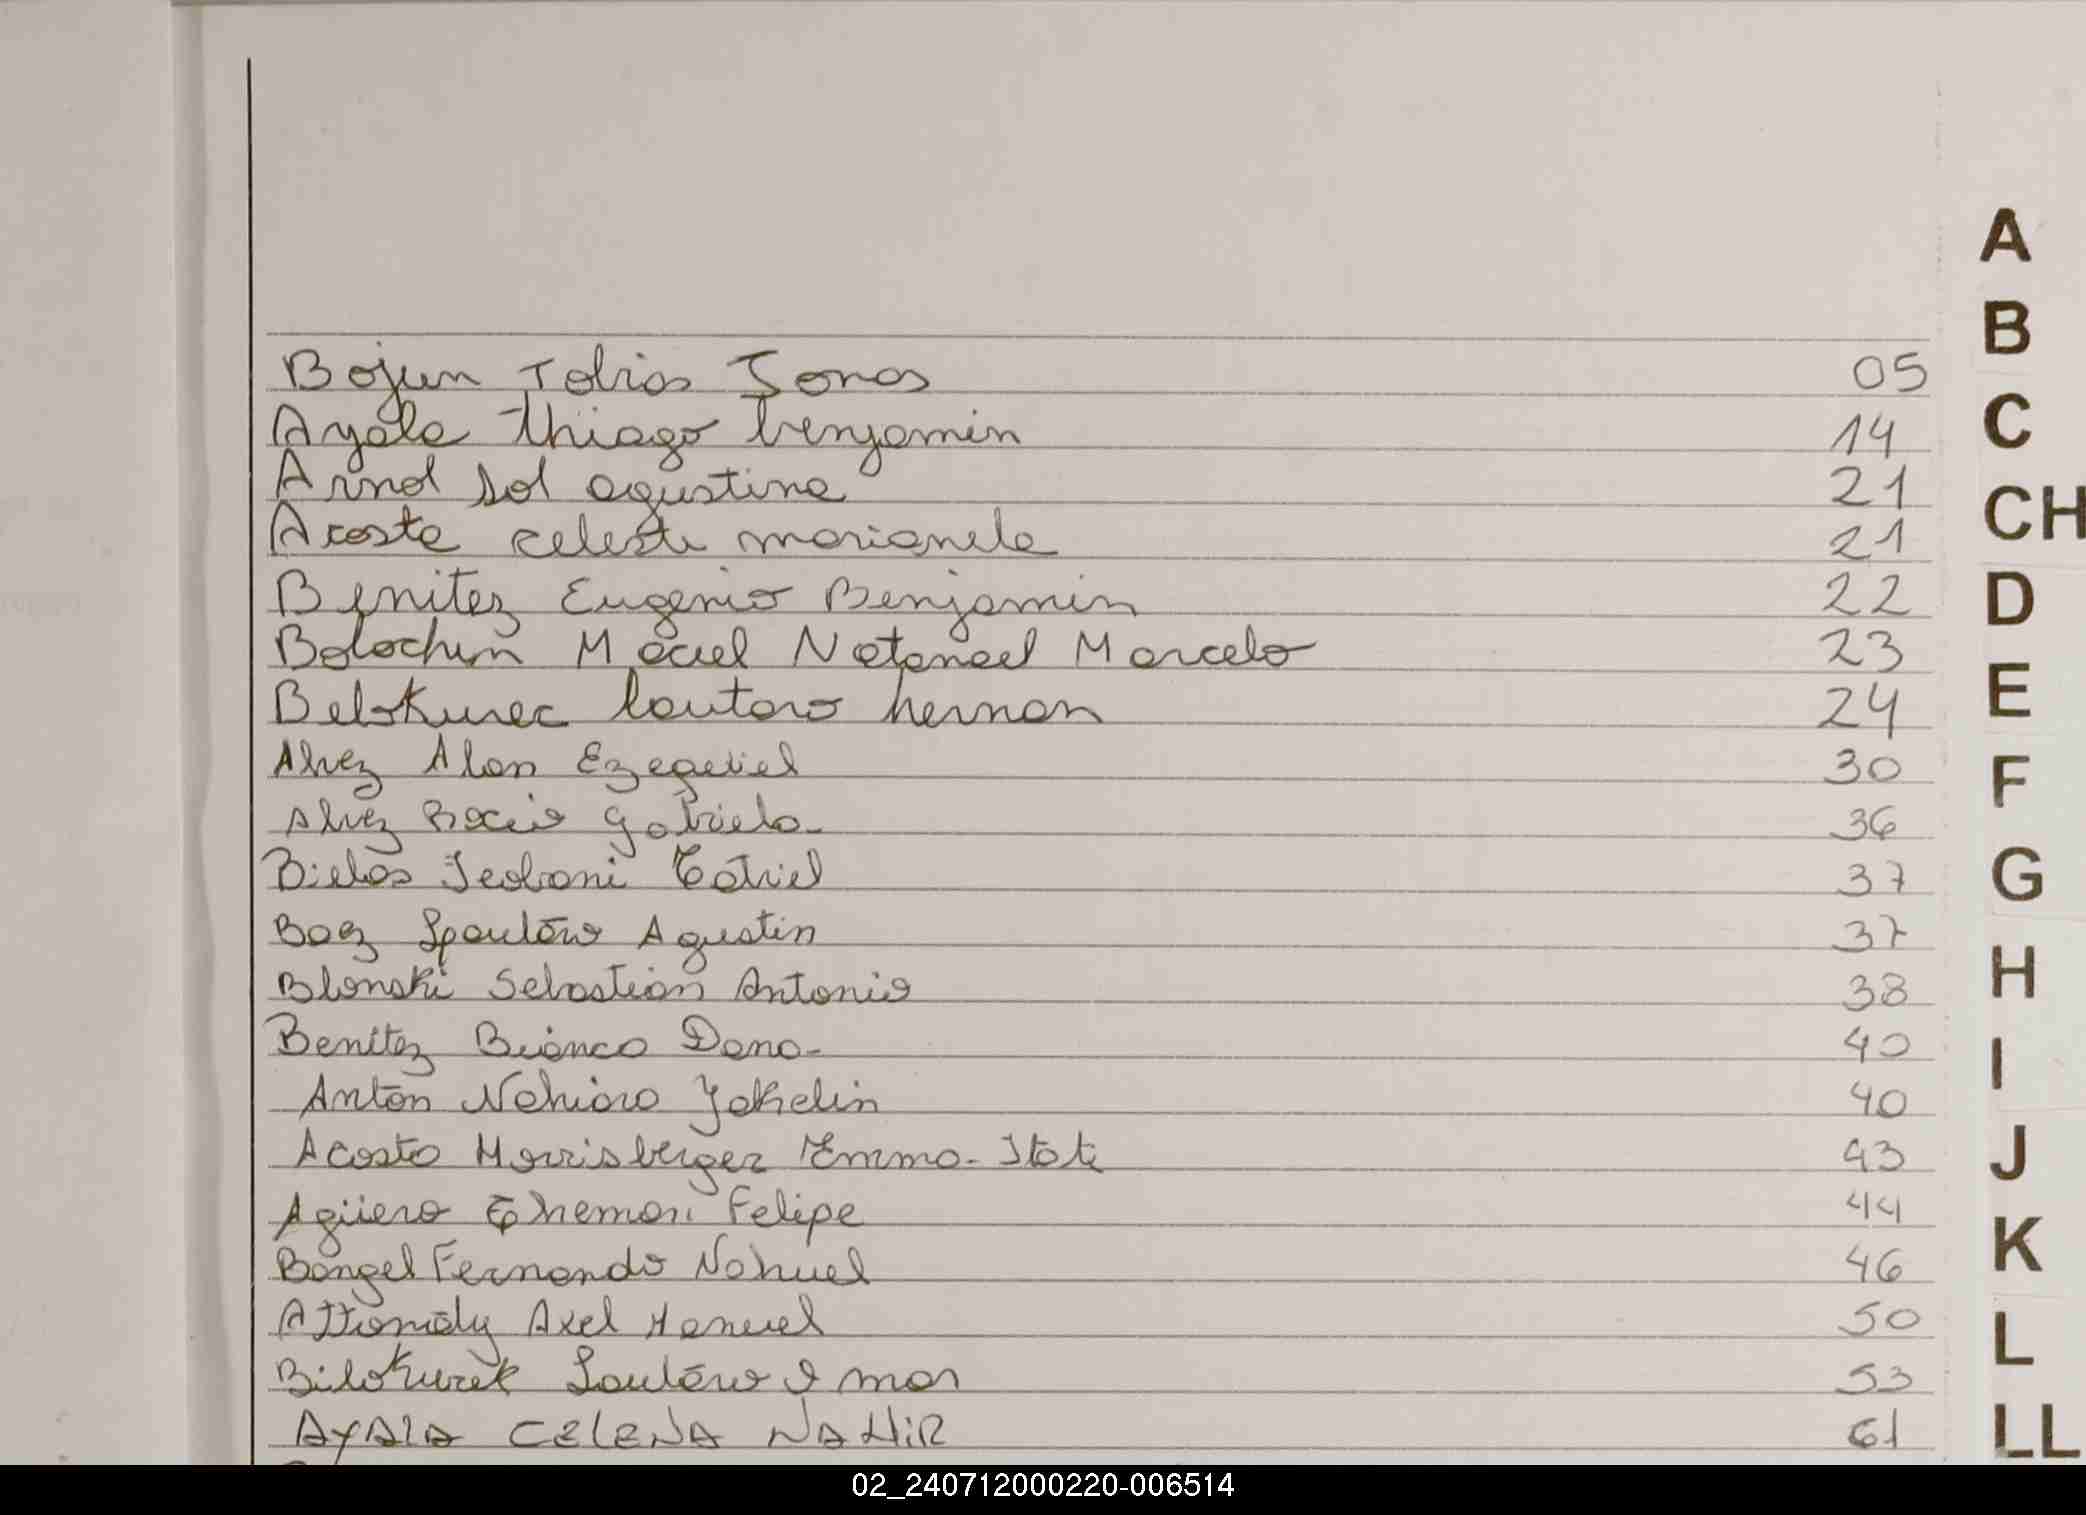 A
B
Bojun Tobias Jonas 05
C
Ayala Thiago benjamin 14
Arnol sol agustina 21
CH
Acosta celeste marianela 21
Benitez Eugenio Benjamin 22
D
Bolochun Maciel Natanael Marcelo 23
E
Belokurec lautaro hernan 24
Alvez Alan Ezequiel 30
F
Alvez Rocio Gabriela 36
G
Bielas 37
Baez Lautáro Agustin 37
H
Blonski Sebastián Antonio 38
Benítez Bianca Dana 40
I
Antón Nahiara Jakelin 40
J
Acosta Morrisberger Emma 43
Agüero Felipe 44
K
Bangel Fernando Nahuel 46
L
Axel Manuel 50
Bilokurek Lautáro 53
LL
AYALA CELENA NAHIR 61
02_240712000220-006514